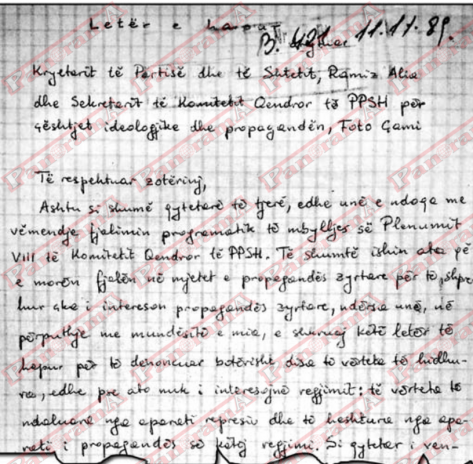 Letër e hapur
B. 421 11.11.89.
Kryetarit të Partisë dhe të Shtetit, Ramiz Alia
dhe Sekretarit të Komitetit Qendror të PPSH për
çështjet ideologjike dhe propagandën, Foto Çami
Të respektuar zotërinj,
Ashtu si shumë qytetarë të tjerë, edhe unë e ndoqa me
vëmendje fjalimin programatik të mbylljes së Plenumit
VIII të Komitetit Qendror të PPSH. Të shumtë ishin ata që
e morën fjalën në mjetet e propagandës zyrtare për të, shpre
hur aka i intereson propagandës zyrtare, ndërsa unë, në
përputhje me mundësitë e mia, e shkruaj këtë letër të
hapur për të denoncuar botërisht disa të vërteta të hidhu-
ra, edhe pse ato nuk i interesojnë regjimit: të vërteta të
ndaluara nga aparati represiv dhe të heshtura nga apa-
rati i propagandës së këtij regjimi. Si qytetar i ven-
PanoramA